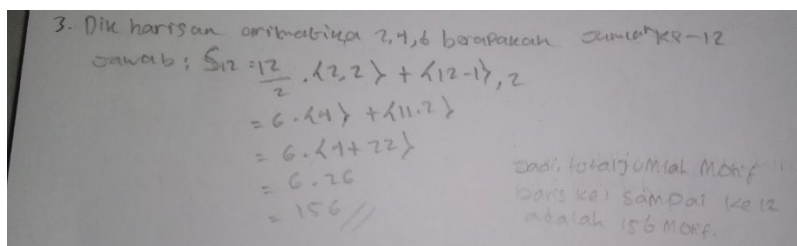 3. Dik harisan aritmatika 2,4,6 berapakah Jumlah ke-12
Jawab : S12 = 12/2 . {2,2} + {12-1}, 2
= 6 . {4} + {11.2}
= 6 . {4 + 22}
= 6 . 26
= 156 //
Jadi, total jumlah Motif
baris ke 1 sampai ke 12
adalah 156 Motif.